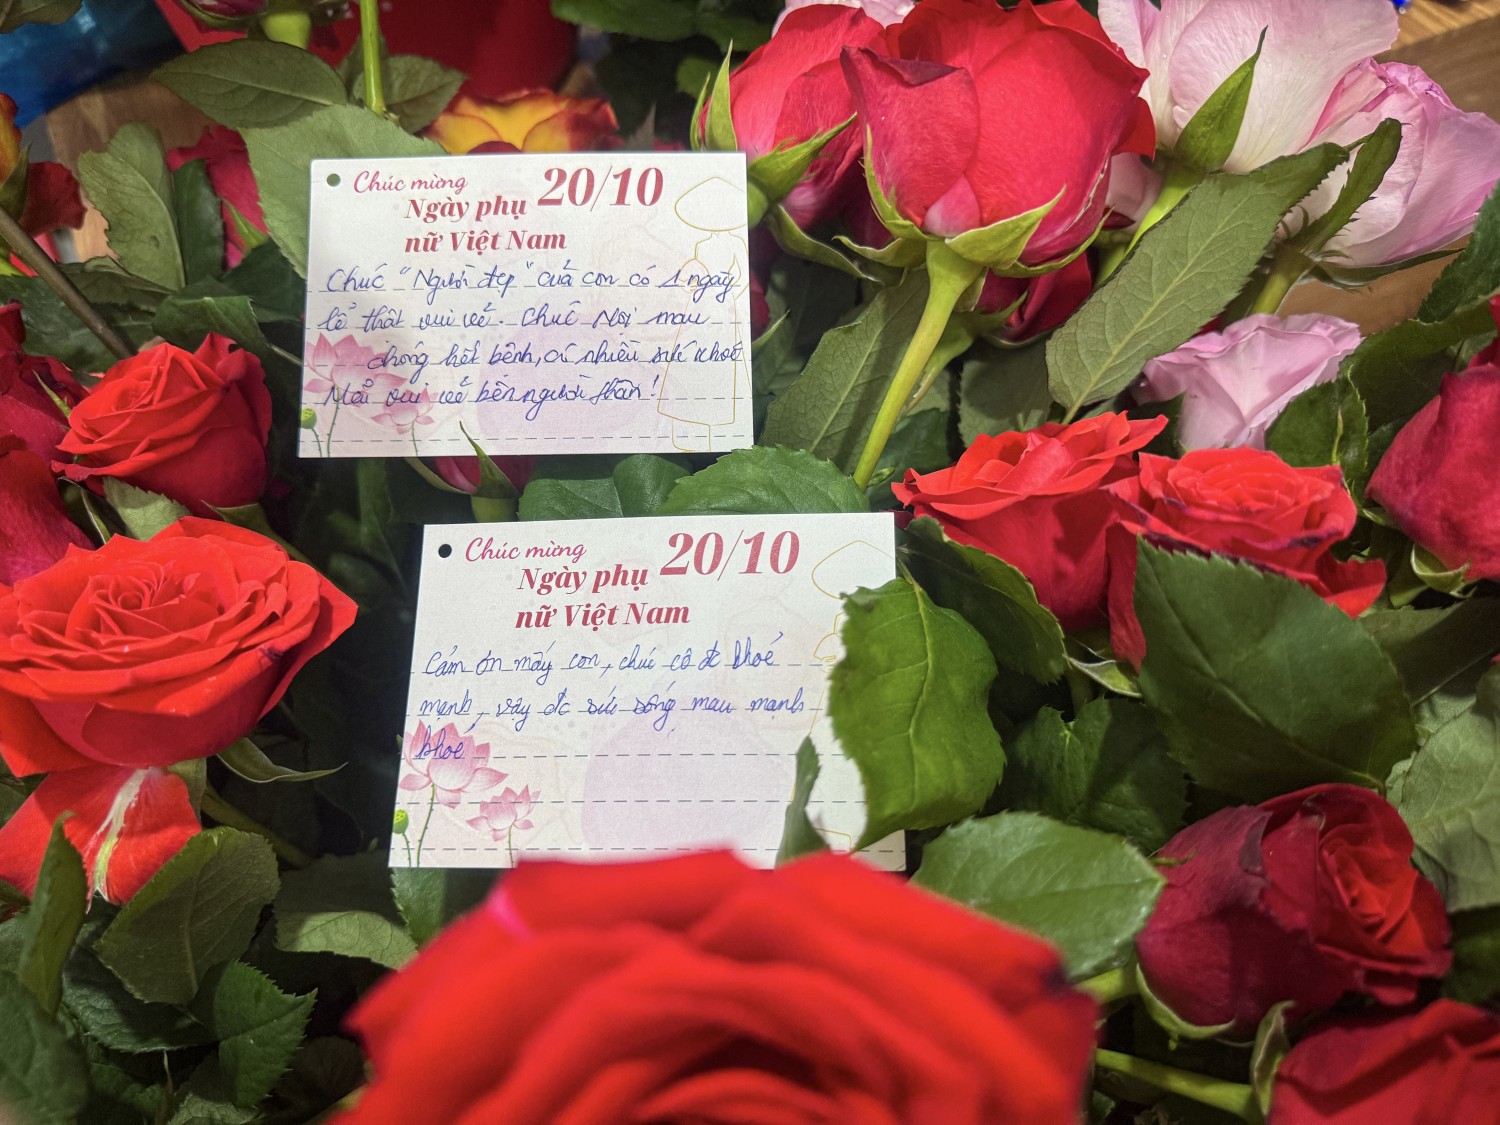 Chúc mừng
Ngày phụ 20/10
nữ Việt Nam
Chúc "Người đẹp" của con có 1 ngày
lễ thật vui vẻ. Chúc Nội mau
chóng hết bệnh, có nhiều sức khoẻ
vui vẻ bên người thân!
Chúc mừng
Ngày phụ 20/10
nữ Việt Nam
Cảm ơn mấy con, chúc cô đc khoẻ
mạnh, vậy đc sức sống mau mạnh
khoẻ